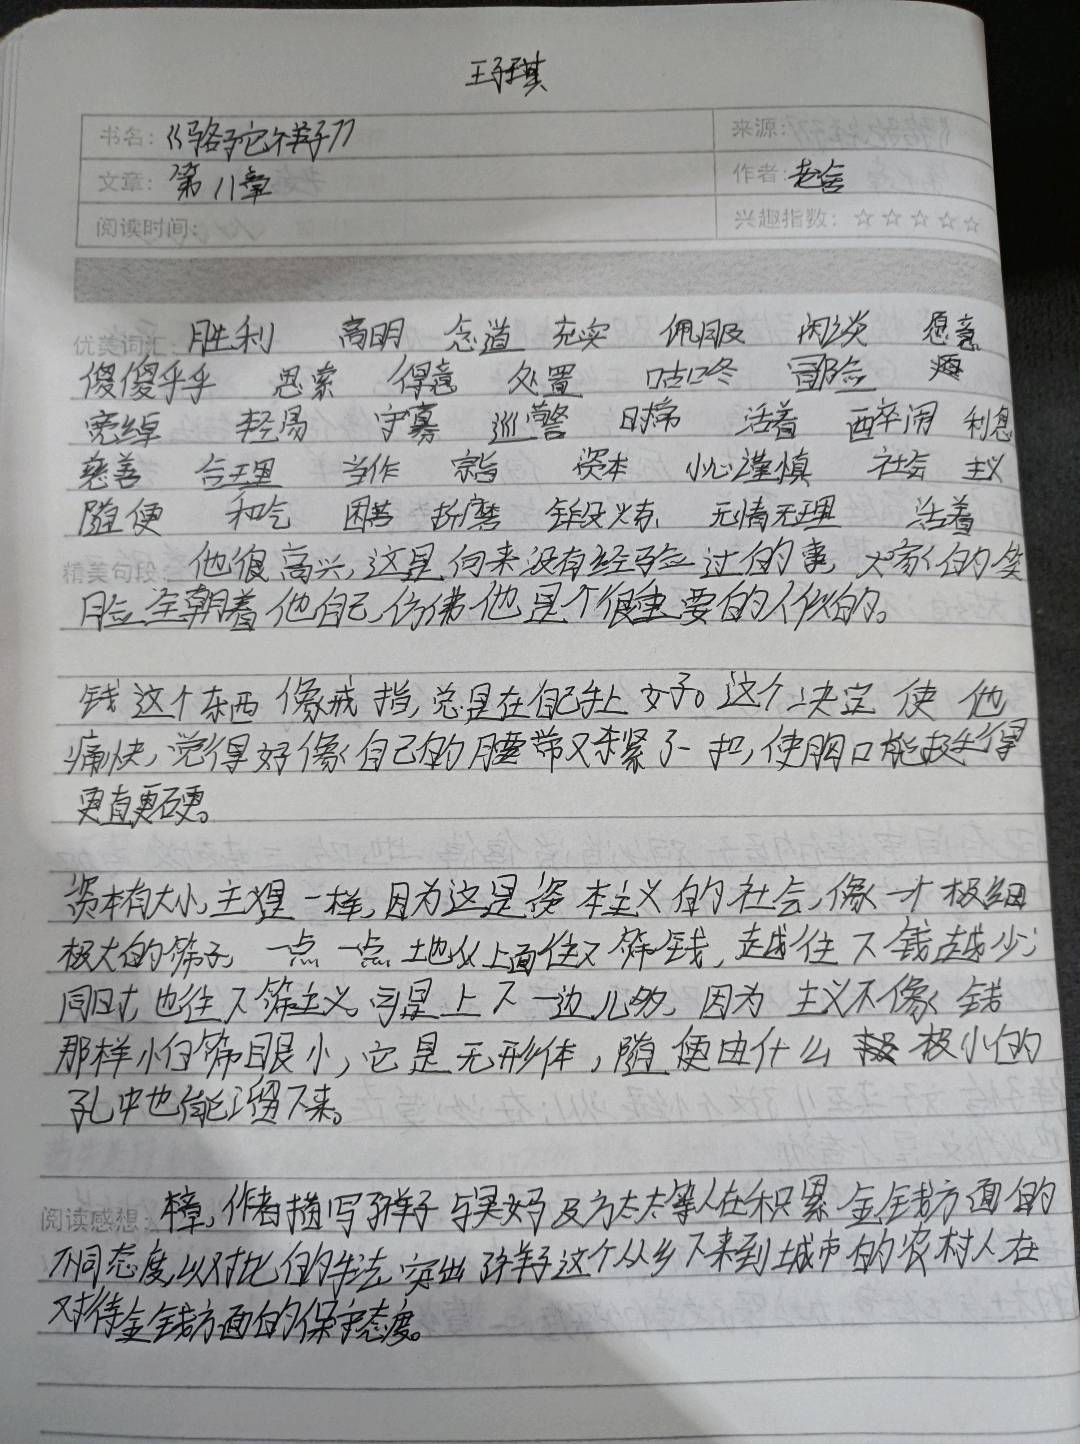 王子琪
书名：《骆驼祥子》 来源：
文章：第八章 作者：老舍
阅读时间： 兴趣指数：☆☆☆☆☆
优美词汇：胜利 高明 念道 充实 佩服 闲谈 愿意
傻傻乎乎 思索 得意 处置 咕咚 冒险
宽绰 轻易 字幕 巡警 时常 活着 西卒闹 利息
慈善 合理 当作 资本 小心谨慎 社会 主义
随便 和气 困苦 折磨 无情无理 活着
精美句段：他很高兴，这是向来没有经验过的事，大家的笑
脸全朝着他自己，仿佛他是个很重要的人似的。
钱这个东西像戒指，总是在自己手上好。这个决定使他
痛快，觉得好像自己的腰带又杀紧了一扣，使胸口能挺得
更直更硬。
资本有大小，主义是一样，因为这是资本主义的社会，像一个极细
极大的筛子，一点一点地从上面往下筛钱，越往下钱越少；
同时，也往下筛主义，可是上下一边儿多，因为主义不像钱
那样小怕筛眼小，它是无形体，随便由什么极小的
孔中也能溜下来。
阅读感想：本章，作者描写了祥子与吴妈及方太太等人在积累金钱方面的
不同态度，以对比的手法突出了祥子这个从乡下来到城市的农村人在
对待金钱方面的保守态度。